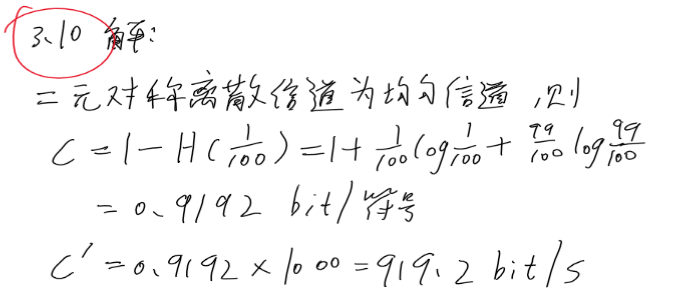 3、10 解:
二元对称离散信道为均匀信道,则
C = 1 - H(1/100) = 1 + 1/100 log 1/100 + 99/100 log 99/100
= 0、9192 bit/符号
C' = 0、9192 × 1000 = 919、2 bit/s